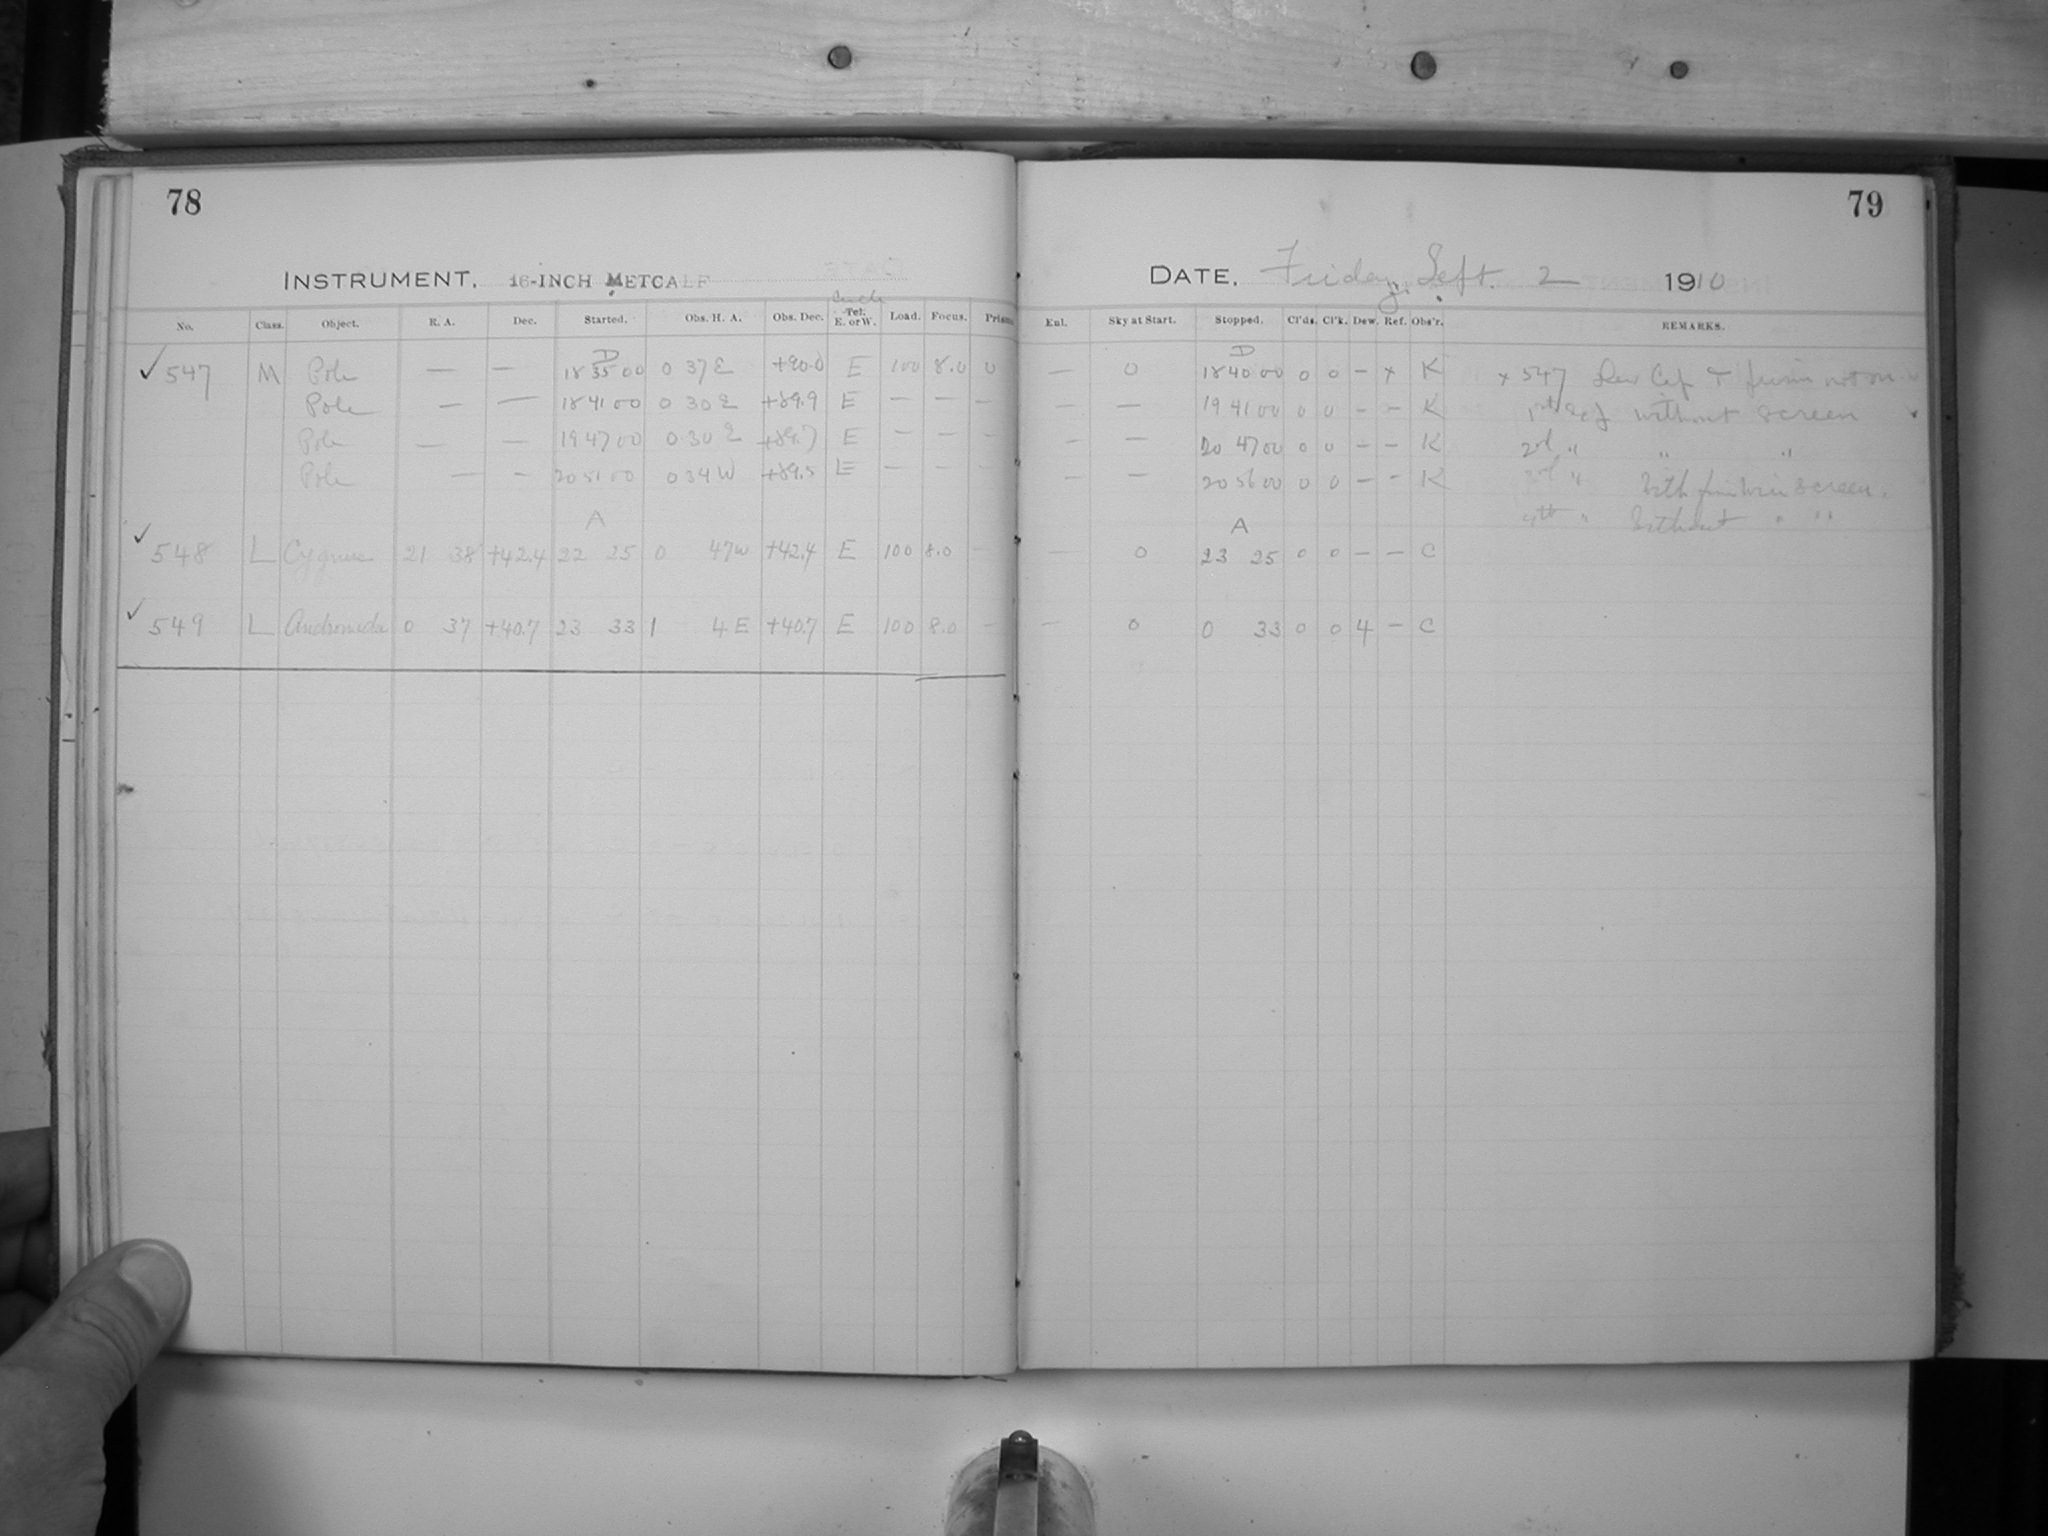 78
79
INSTRUMENT, 16-INCH METCALF
DATE, Friday, Sept. 2 1910
No. Class. Object. R. A. Dec. Started. Obs. H. A. Obs. Dec. Circle Tel. E. or W. Load. Focus. Prism Enl. Sky at Start. Stopped. Cl'ds. Cl'k. Dew. Ref. Obs'r. REMARKS.
D D
✓ 547 M Pole — — 18 35 00 0 37 E +90.0 E 100 8.0 0 — 0 18 40 00 0 0 — x K x 547 Dew Cap & prism not on
Pole — — 18 41 00 0 30 E +89.9 E — — — — — 19 41 00 0 0 — — K 1st without screen
Pole — — 19 47 00 0 30 E +89.7 E — — — — — 20 47 00 0 0 — — K 2nd " " "
Pole — — 20 51 00 0 34 W +89.5 E — — — — — 20 56 00 0 0 — — K 3rd " With screen.
A A 4th " Without " "
✓ 548 L Cygnus 21 38 +42.4 22 25 0 47 W +42.4 E 100 8.0 — — 0 23 25 0 0 — — C
✓ 549 L Andromeda 0 37 +40.7 23 33 1 4 E +40.7 E 100 8.0 — — 0 0 33 0 0 4 — C